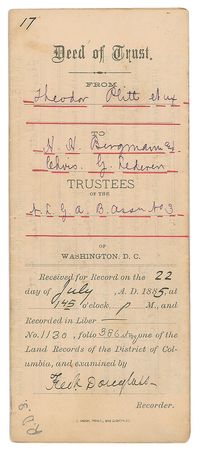 17
Deed of Trust.
FROM
Theodor Plitt et ux
TO
H. H. Bergmann &
Chris. G. Lederer
TRUSTEES
OF THE
B. Assn No 3
OF
WASHINGTON, D. C.
Received for Record on the 22
day of July , A. D. 1885, at
1.45 o'clock, P M., and
Recorded in Liber
No. 1130, folio 366 one of the
Land Records of the District of Col-
umbia, and examined by
Fredk Douglass
Recorder.